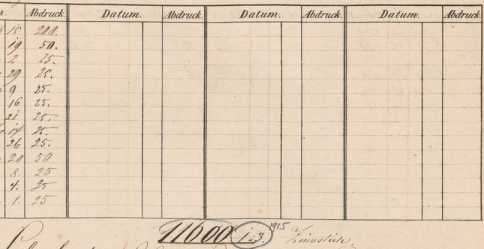 Abdruck. Datum. Abdruck. Datum. Abdruck. Datum. Abdruck.
15 200.
19 50.
2 25.
29 25.
9 25.
16 25.
21 25.
17 25.
26 25.
20 50
8 25
4. 25
1. 25
11600 1-3. 1915